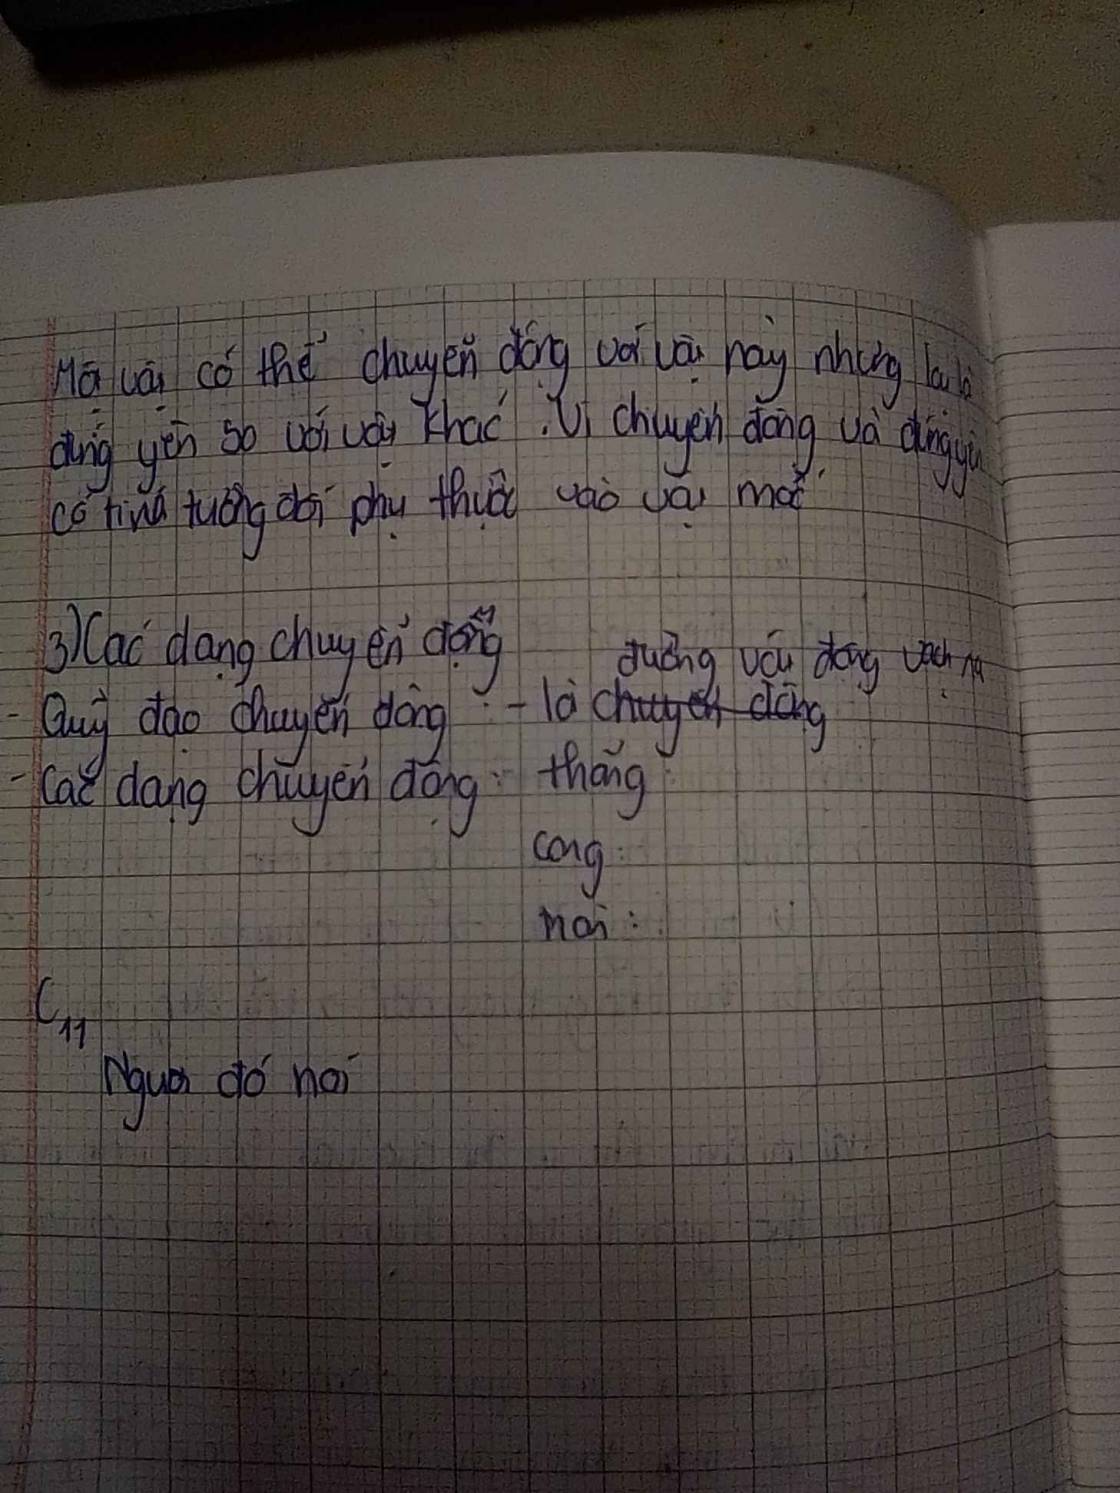 Một vật có thể chuyển động với vật này nhưng lại là
đứng yên so với vật khác. Vì chuyển động và đứng yên
có tính tương đối phụ thuộc vào vật mốc
3) Các dạng chuyển động
đường vật động vạch ra
- Quỹ đạo chuyển động: - là chuyển động
- Các dạng chuyển động: thẳng:
cong:
nơi:
C11
Người đó nói